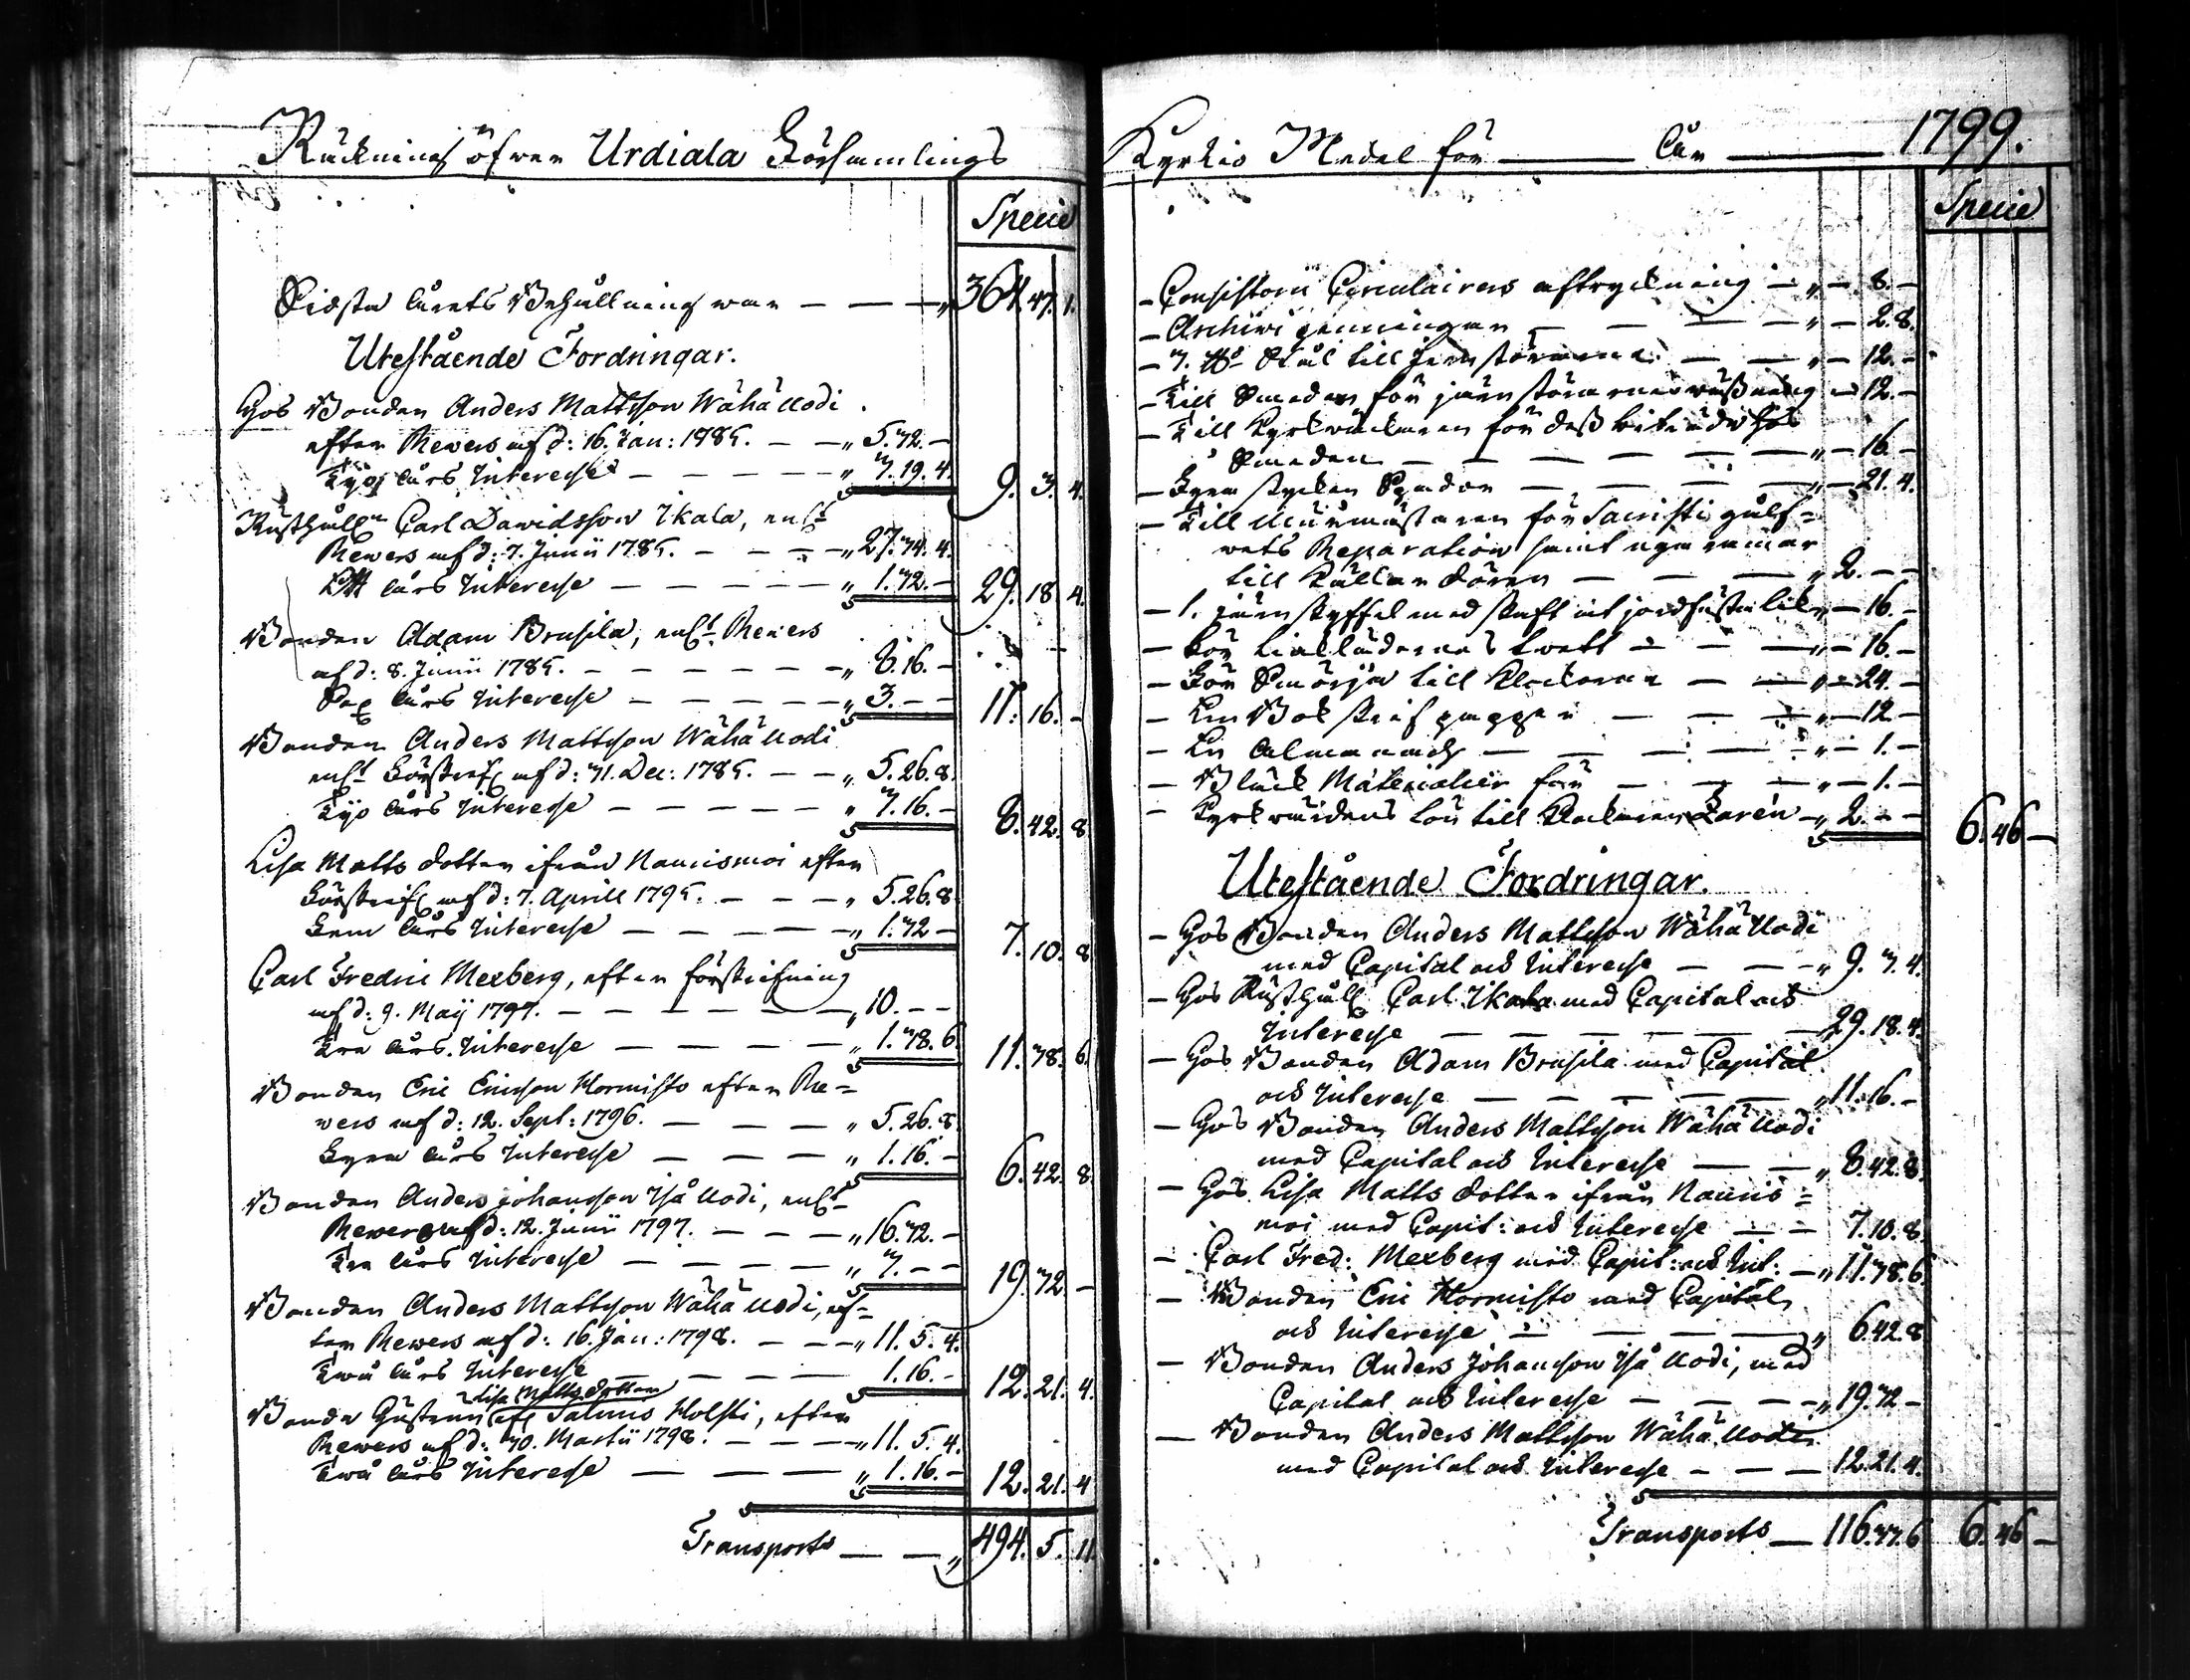 Räkning öfwer Urdiala Församlings
Specie
Sidsta årets Behållning war — — — „ 364. 47. 1.
Utestående Fordringar.
Hos Bonden Anders Mattsson Wähä Uodi
efter Revers af d: 16. Jan: 1785. — — „ 5. 32. —
Tijo års Interesse — — — — „ 3. 19. 4.
9. 3. 4.
Rusthåll:n Carl Davidsson Ikala, enl:t
Revers af d: 7. Junii 1785. — — — — „ 27. 34. 4.
Ett års Interesse — — — — — „ 1. 32. —
29. 18. 4.
Bonden Adam Brusila, enl:t Revers
af d: 8. Junii 1785. — — — — — — „ 8. 16. —
Sex års Interesse — — — — — „ 3. — —
11. 16. —
Bonden Anders Mattsson Wähä Uodi
enl:t Förskrif: af d: 31. Dec: 1785. — — „ 5. 26. 8.
Tijo års Interesse — — — — — „ 3. 16. —
8. 42. 8.
Lisa Matts dotter ifrån Naurismoi efter
Förskrif: af d: 7. Aprill 1795. — — — „ 5. 26. 8.
Fem års Interesse — — — — — „ 1. 32 —
7. 10. 8.
Carl Fredric Mexberg, efter förskrifning
af d: 9. Maij 1797. — — — — — — „ 10. — —
Tre års Interesse — — — — „ 1. 38. 6.
11. 38. 6.
Bonden Eric Ericsson Hormisto efter Re=
vers af d: 12. Sept: 1796. — — — „ 5. 26. 8.
Fyra års Interesse — — — „ 1. 16. —
6. 42. 8.
Bonden Anders Johansson Iså Uodi, enl:t
Revers af d: 12. Junii 1797. — — — „ 16. 32. —
Tre års Interesse — — — — — „ 3. — —
19. 32 —
Bonden Anders Mattsson Wähä Uodi, ef=
ter Revers af d: 16. Jan: 1798. — — — „ 11. 5. 4.
Twå års Interesse — — — — 1. 16. —
12. 21. 4.
Lisa Matts dotter
Bonde Hustrun af Salmis Holsti, efter
Revers af d: 30. Martii 1798. — — — — „ 11. 5. 4.
Twå års Interesse — — — „ 1. 16. —
12. 21. 4
Transports — — „ 494. 5. 11.
Kyrkio Medel för — År — 1799.
Specie
— Consistorii Circulairers aftryckning — „ — 8. —
— Archivi penningar — — — — „ — 2. 8.
— 3. ℔ Stål till jernstörarna — — „ — 12. —
— Till Smeden för järnstörarnes — 12. —
— Till Kyrkwäktaren för dess biträde hos
Smeden — — — — — — „ — 16. —
— Fyra stycken Spadar — — — — „ — 21. 4.
— Till Murmästaren för Sacristi gålf=
wets Reparation samt
till källar dören — — — „ 2. — —
— 1. järnskyffel med skaft at jordfästa lik „ — 16. —
— För Linklädernas twätt — — — „ — 16. —
— För Smörja till Klockorna — — „ — 24. —
— En Bok skrifpapper — — — „ — 12 —
— En Almanach — — — — „ — 1. —
— Bläck Materialier för — — — „ — 1. —
— Kyrkwärdens lön till Klockaren Zarén — „ 2. — —
6. 46 —
Utestående Fordringar.
— Hos Bonden Anders Mattsson Wähä Uodi
med Capital och Interesse — — — „ 9. 3. 4.
— Hos Rusthåll: Carl Ikala med Capital och
Interesse — — — — — — „ 29. 18. 4.
— Hos Bonden Adam Brusila med Capital
och Interesse — — — — — „ 11. 16. —
— Hos Bonden Anders Mattsson Wähä Uodi
med Capital och Interesse — — „ 8. 42. 8.
— Hos Lisa Matts dotter ifrån Nauris=
moi med Capit: och Interesse — — 7. 10. 8.
— Carl Fred: Mexberg med Capit: och Int: — „ 11. 38. 6.
— Bonden Eric Hormisto med Capital
och Interesse — — — — „ 6. 42. 8.
— Bonden Anders Johansson Iså Uodi, med
Capital och Interesse — — — — „ 19. 32 —
— Bonden Anders Mattsson Wähä Uodi
med Capital och Interesse — — — 12. 21. 4.
Transports — 116. 33. 6 6. 46 —